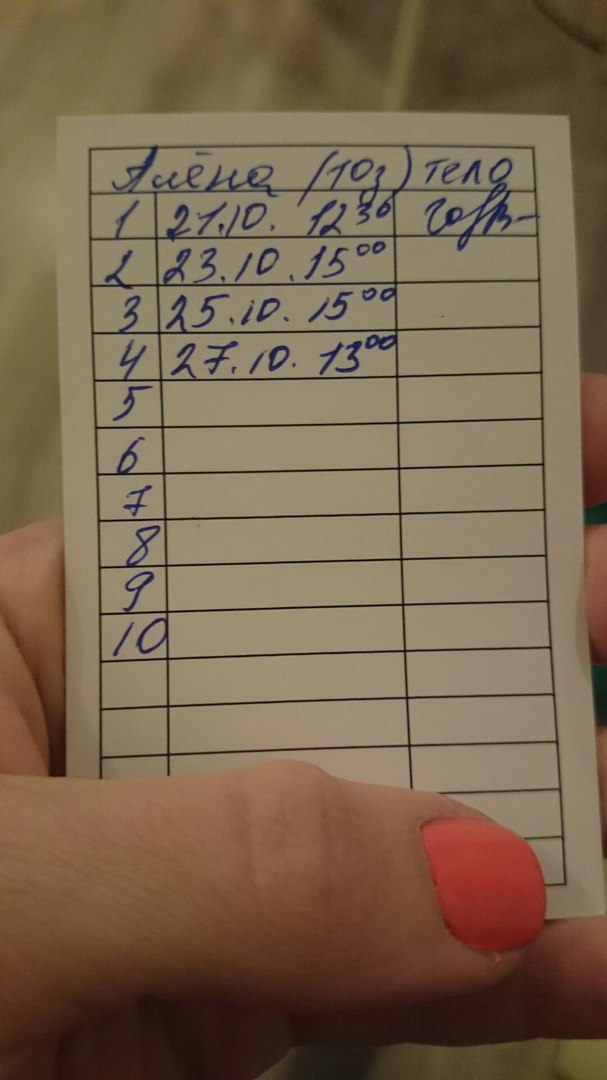 Алёна (10з) тело
1 21.10. 12³⁰
2 23.10. 15⁰⁰
3 25.10. 15⁰⁰
4 27.10. 13⁰⁰
5
6
7
8
9
10